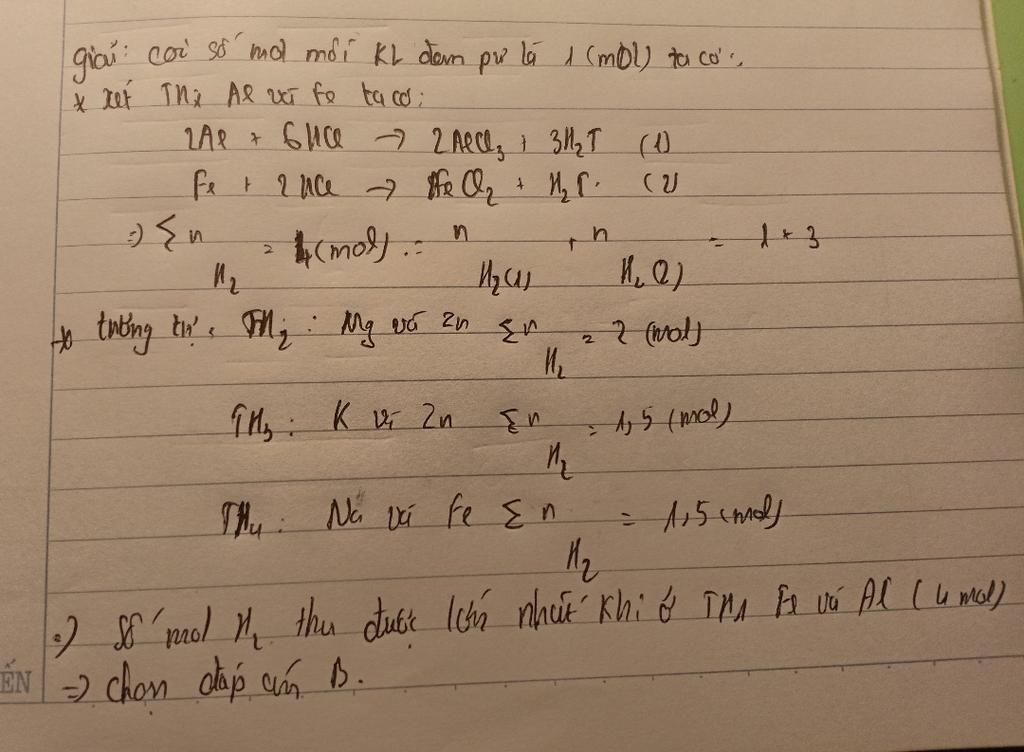 giải: coi số mol mỗi KL đem pư là 1 (mol) ta có:
* xét TH1 Al và Fe ta có:
2Al + 6HCl → 2AlCl3 + 3H2↑ (1)
Fe + 2HCl → FeCl2 + H2↑. (2)
=> Σn H2 = 4(mol) := n H2(1) + n H2(2) = 1 + 3
* tương tự: TH2: Mg và Zn Σn H2 = 2 (mol)
TH3: K và Zn Σn H2 = 1,5 (mol)
TH4: Na và Fe Σn H2 = 1,5 (mol)
=> Số mol H2 thu được lớn nhất khi ở TH1 Fe và Al (4 mol)
=> chọn đáp án B.
ẾN